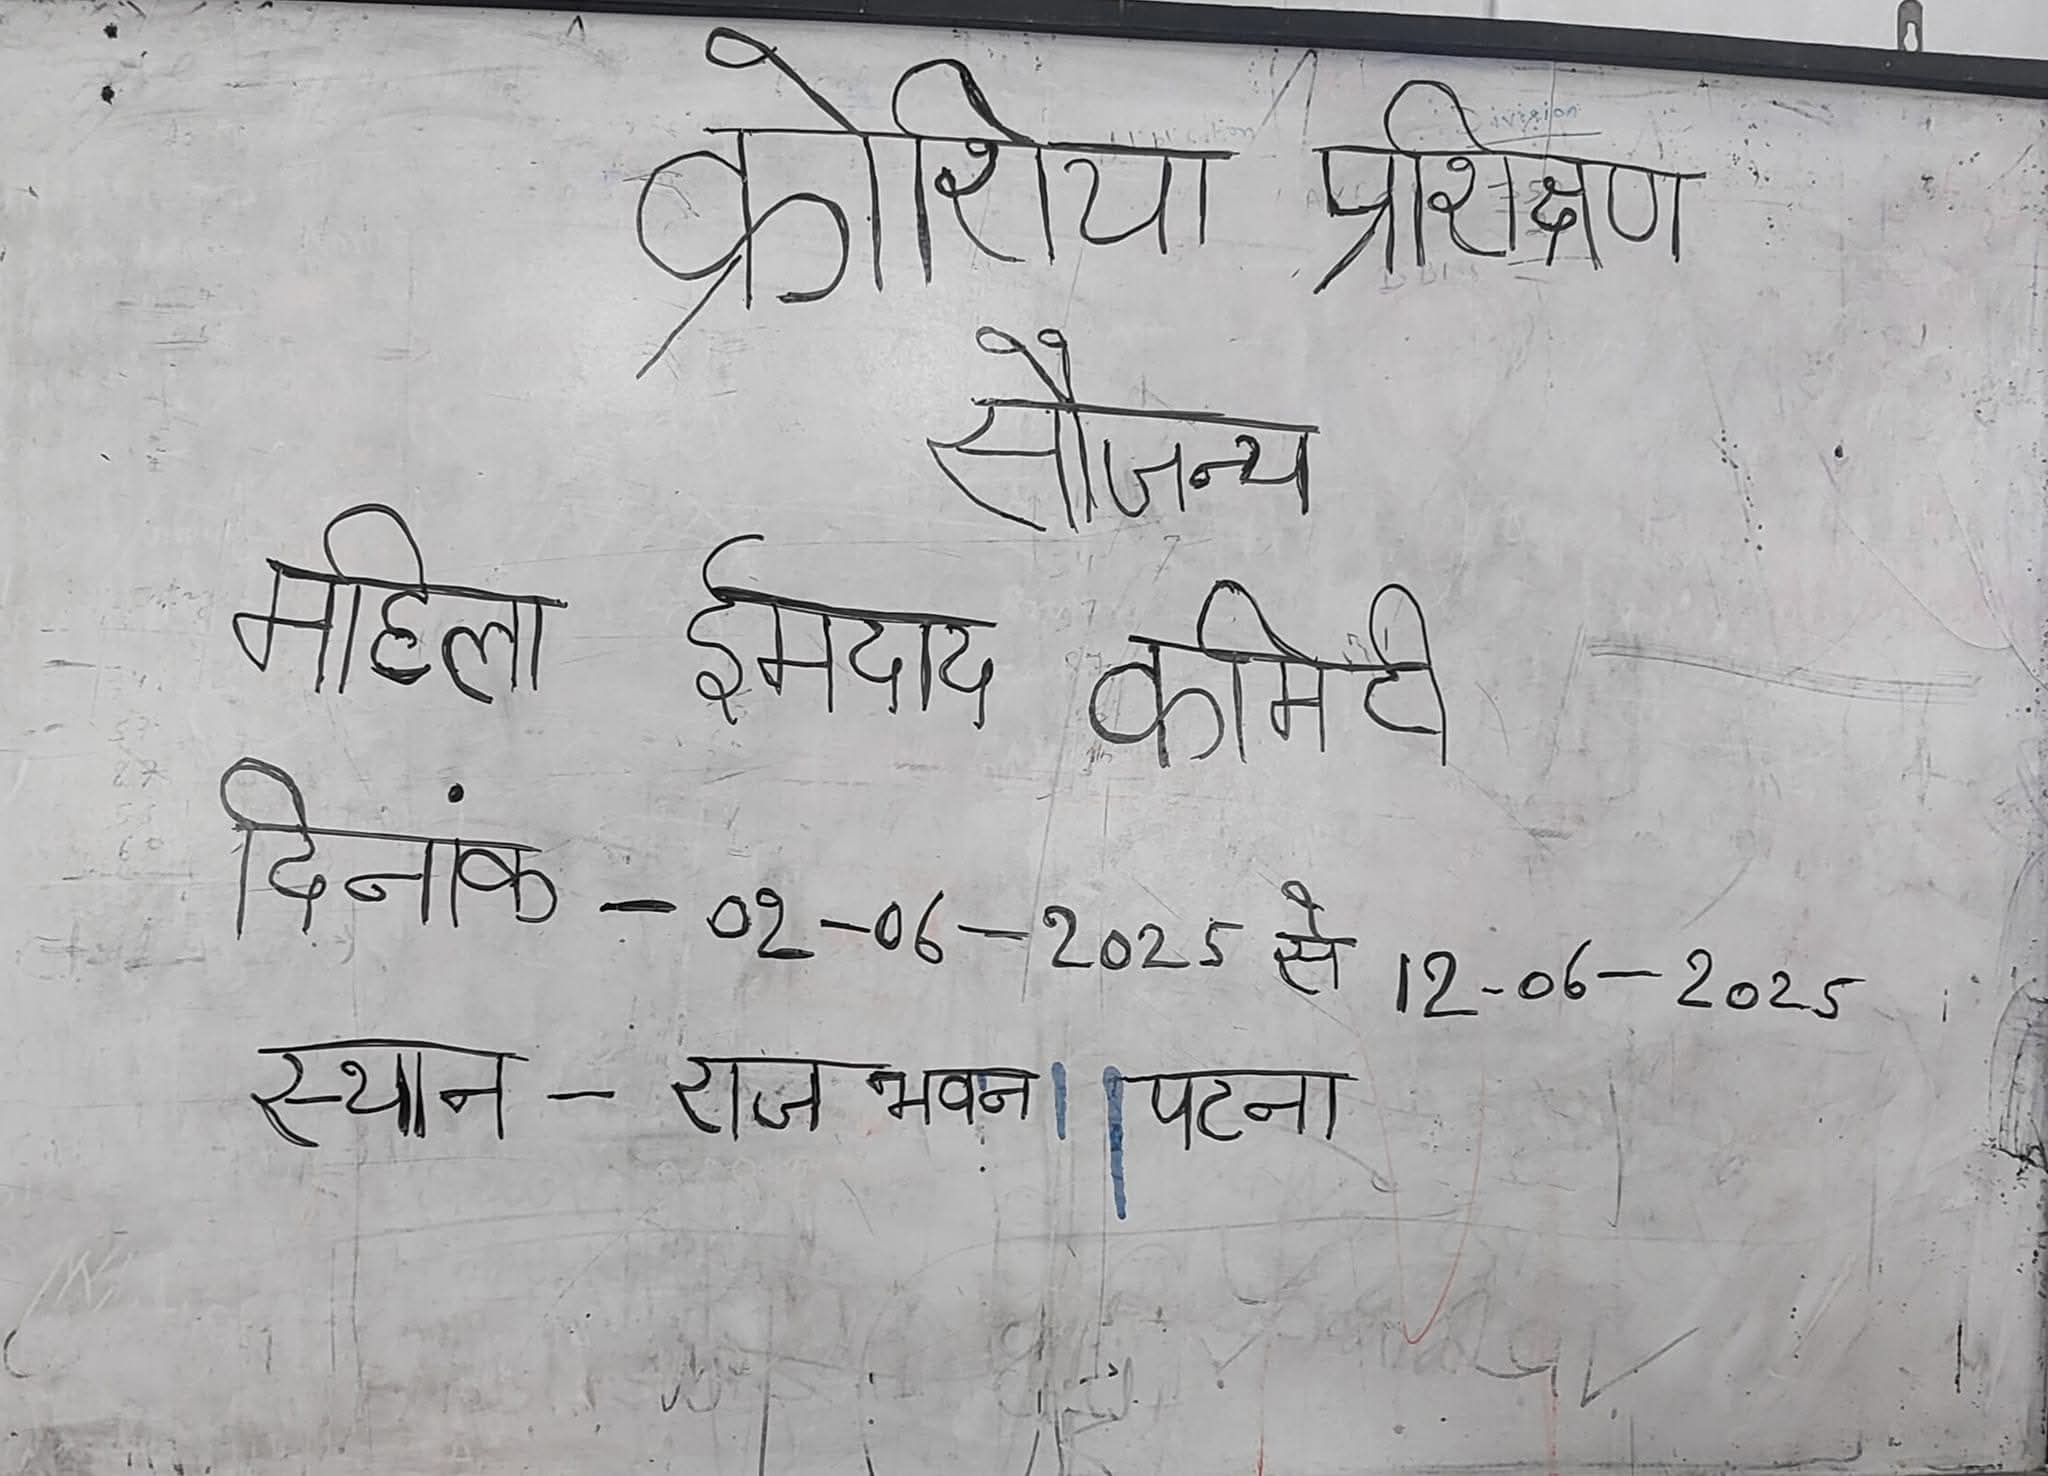 क्रोशिया प्रशिक्षण
सौजन्य
महिला ईमदाद कमिटी
दिनांक - 02-06-2025 से 12-06-2025
स्थान - राज भवन पटना